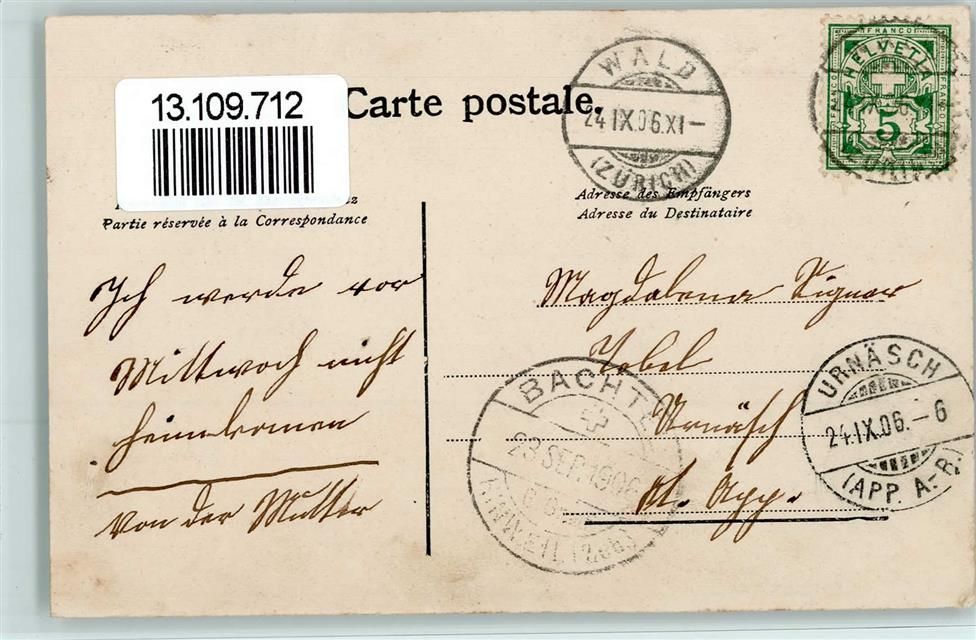 13.109.712
Carte postale.
Partie réservée à la Correspondance
Ich werde vor
Mittwoch nicht
heimkomen
von der Mutter
WALD
24.IX.06.XI–
(ZÜRICH)
HELVETIA
FRANCO
5
Adresse des Empfängers
Adresse du Destinataire
Magdalena Signer
Tobel
Urnäsch
Kt. App.
BACHTEL
23 SEP. 1906
URNÄSCH
24.IX.06.–6
(APP. A-R)